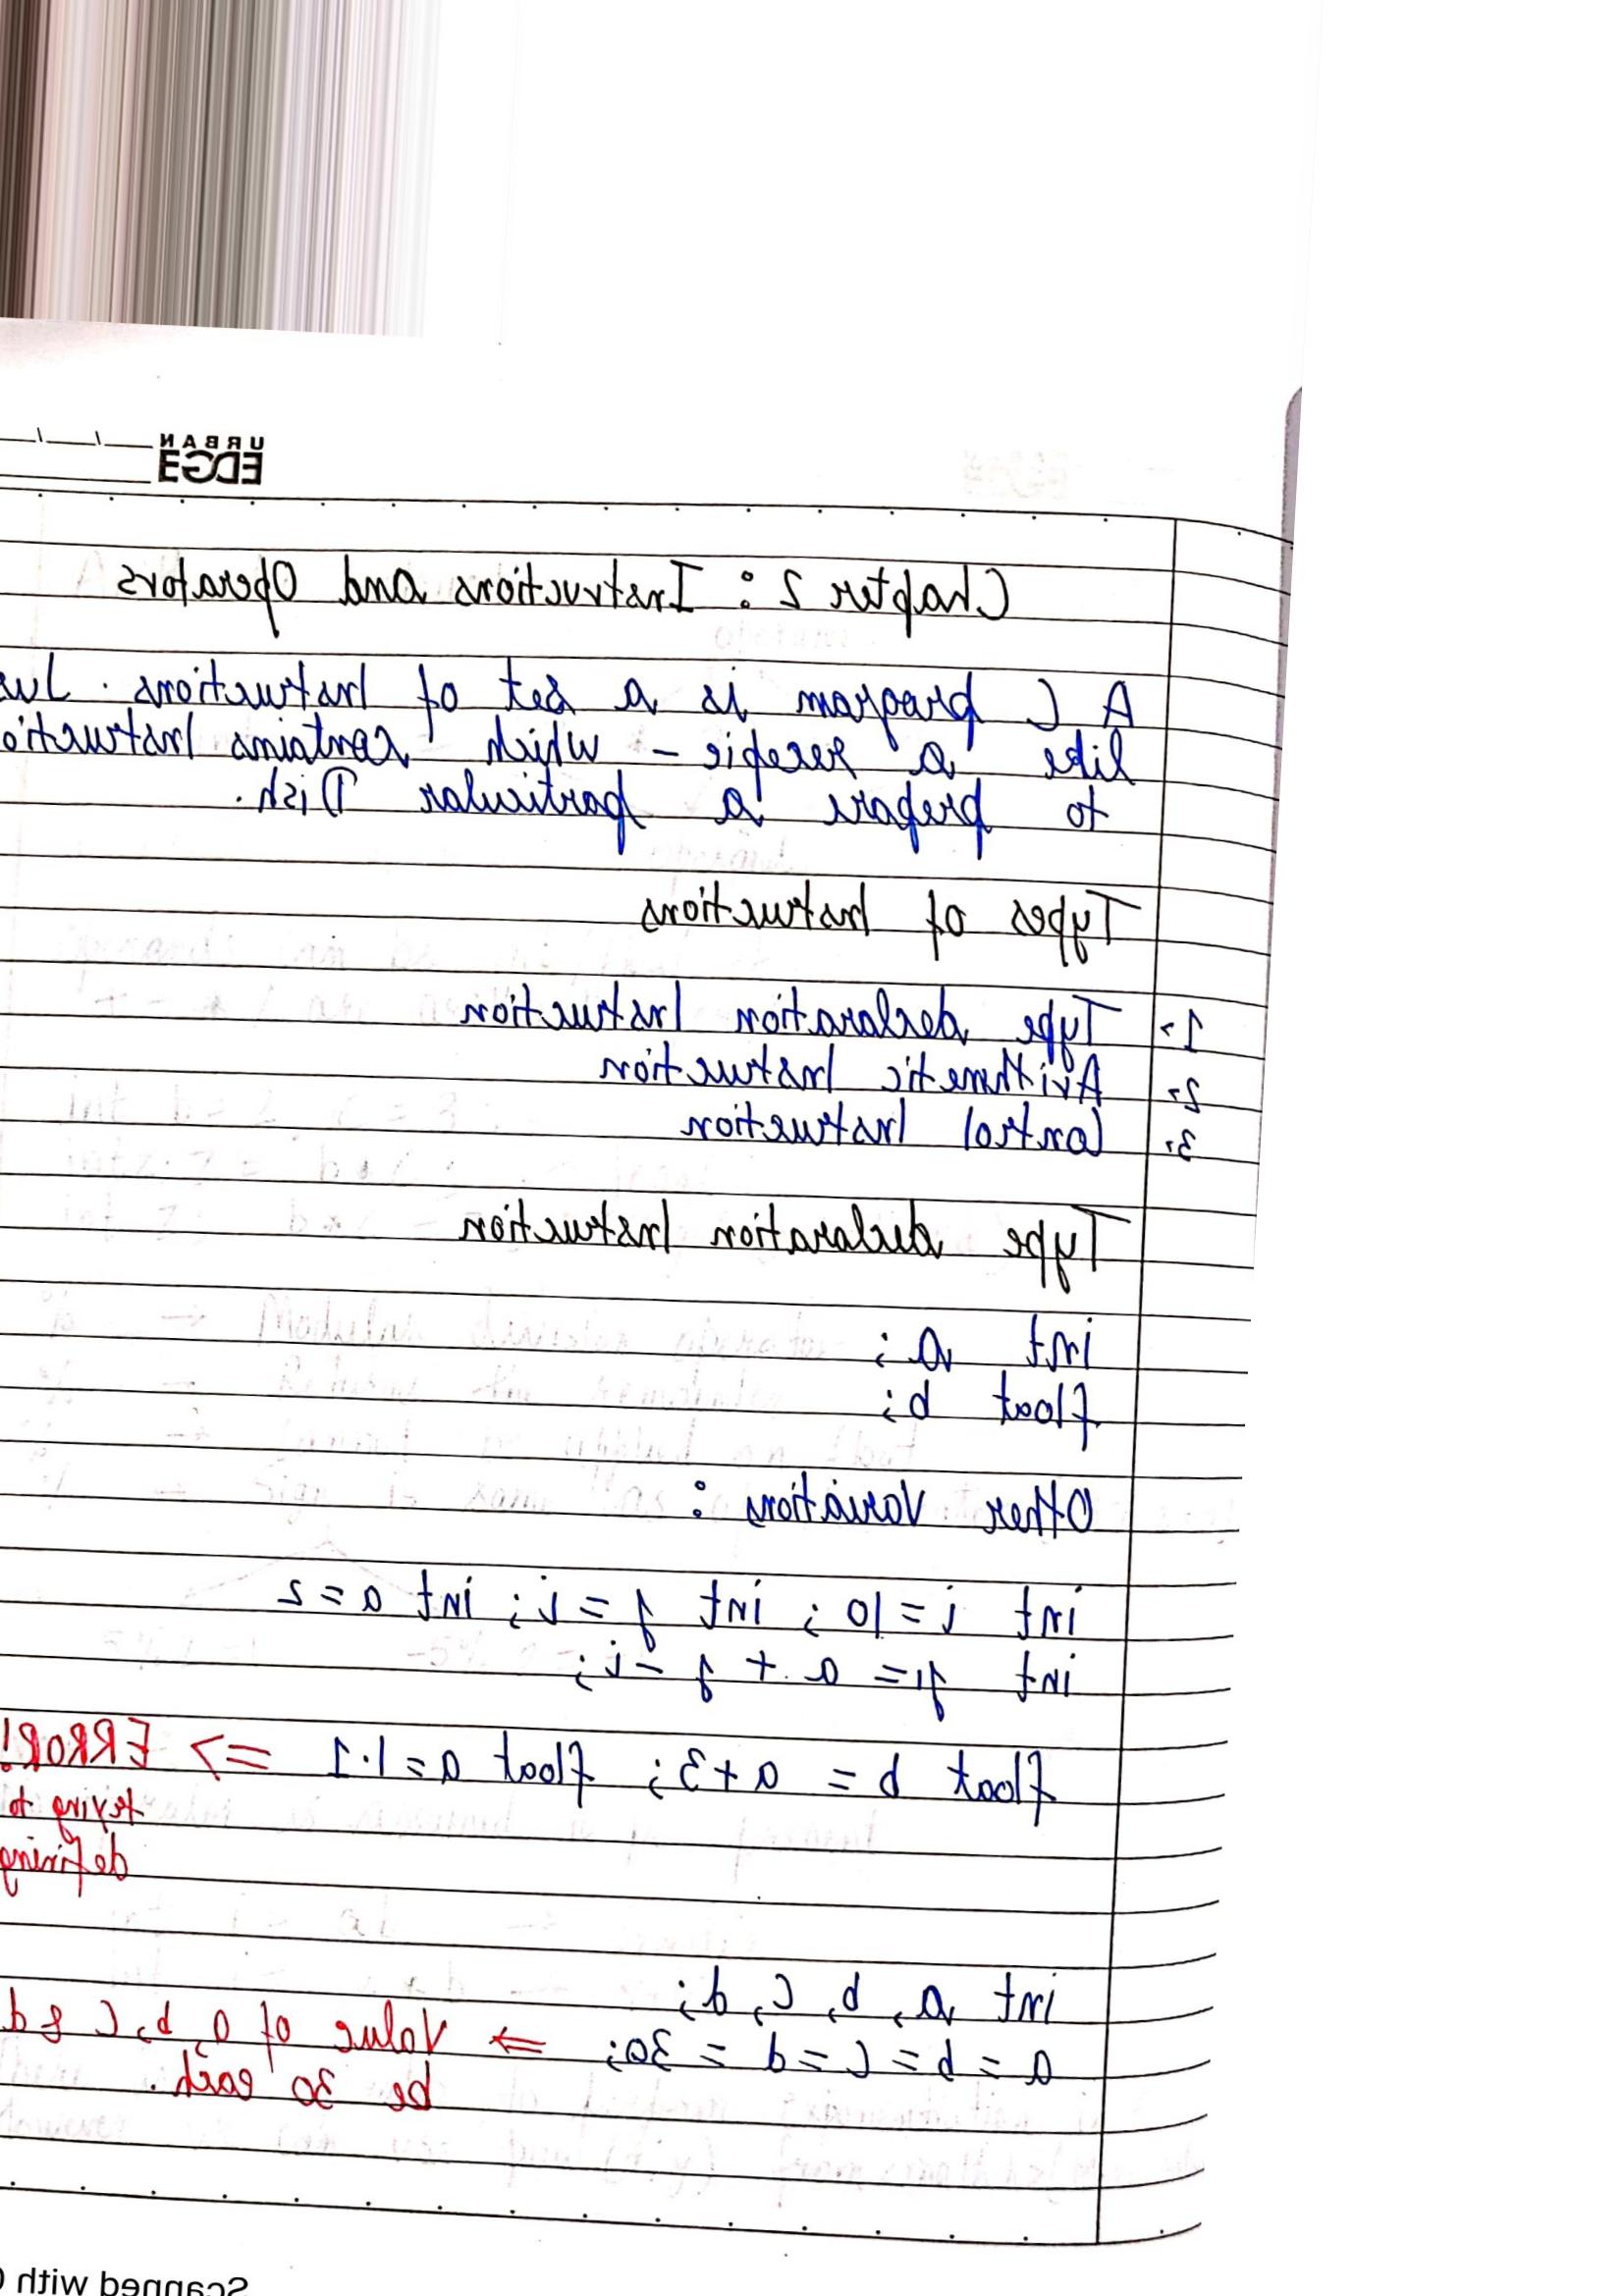 URBAN
EDGE
Chapter 2 : Instructions and Operators
A C program is a set of Instructions. Jus
like a recepie - which contains Instructio
to prepare a particular Dish.
Types of Instructions
1. Type declaration Instruction
2. Arithmetic Instruction
3. Control Instruction
Type declaration Instruction
int a;
float b;
Other Variations :
int i = 10; int j = i; int a = 2
int j1 = a + j - i;
float b = a + 3; float a = 1.1 => ERROR!
trying to
defining
int a, b, c, d;
a = b = c = d = 30; => Value of a, b, c & d
be 30 each.
Scanned with